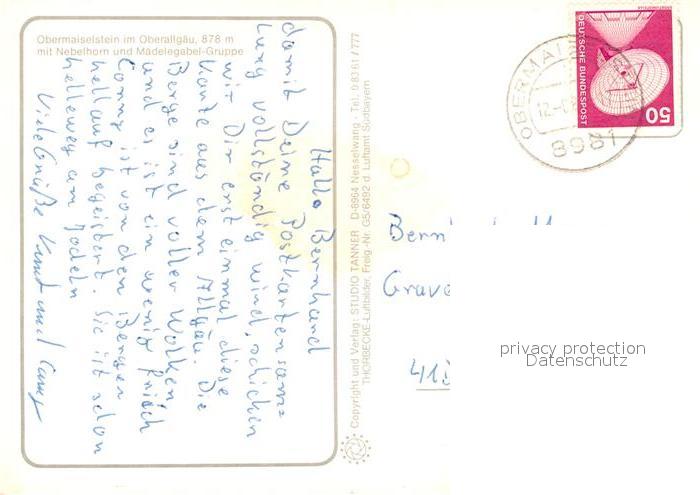 Obermaiselstein im Oberallgäu, 878 m
mit Nebelhorn und Mädelegabel-Gruppe
Hallo Bernhard
damit Deine Postkartensam=
lung vollständig wird, schicken
wir Dir erst einmal diese
Karte aus dem Allgäu. Die
Berge sind voller Wolken
und es ist ein wenig frisch
Conny ist von den Bergen
hellauf begeistert. Sie ist schon
helleweg am Jodeln
Viele Grüße Knut und Conny
Copyright und Verlag: STUDIO TANNER D-8964 Nesselwang · Tel. 0 83 61 / 777
THORBECKE-Luftbilder, Freig.-Nr. G5/6492 d. Luftamt Südbayern
DEUTSCHE BUNDESPOST
50
OBERMAI
12.-
8981
Bern
Grave
41
privacy protection
Datenschutz